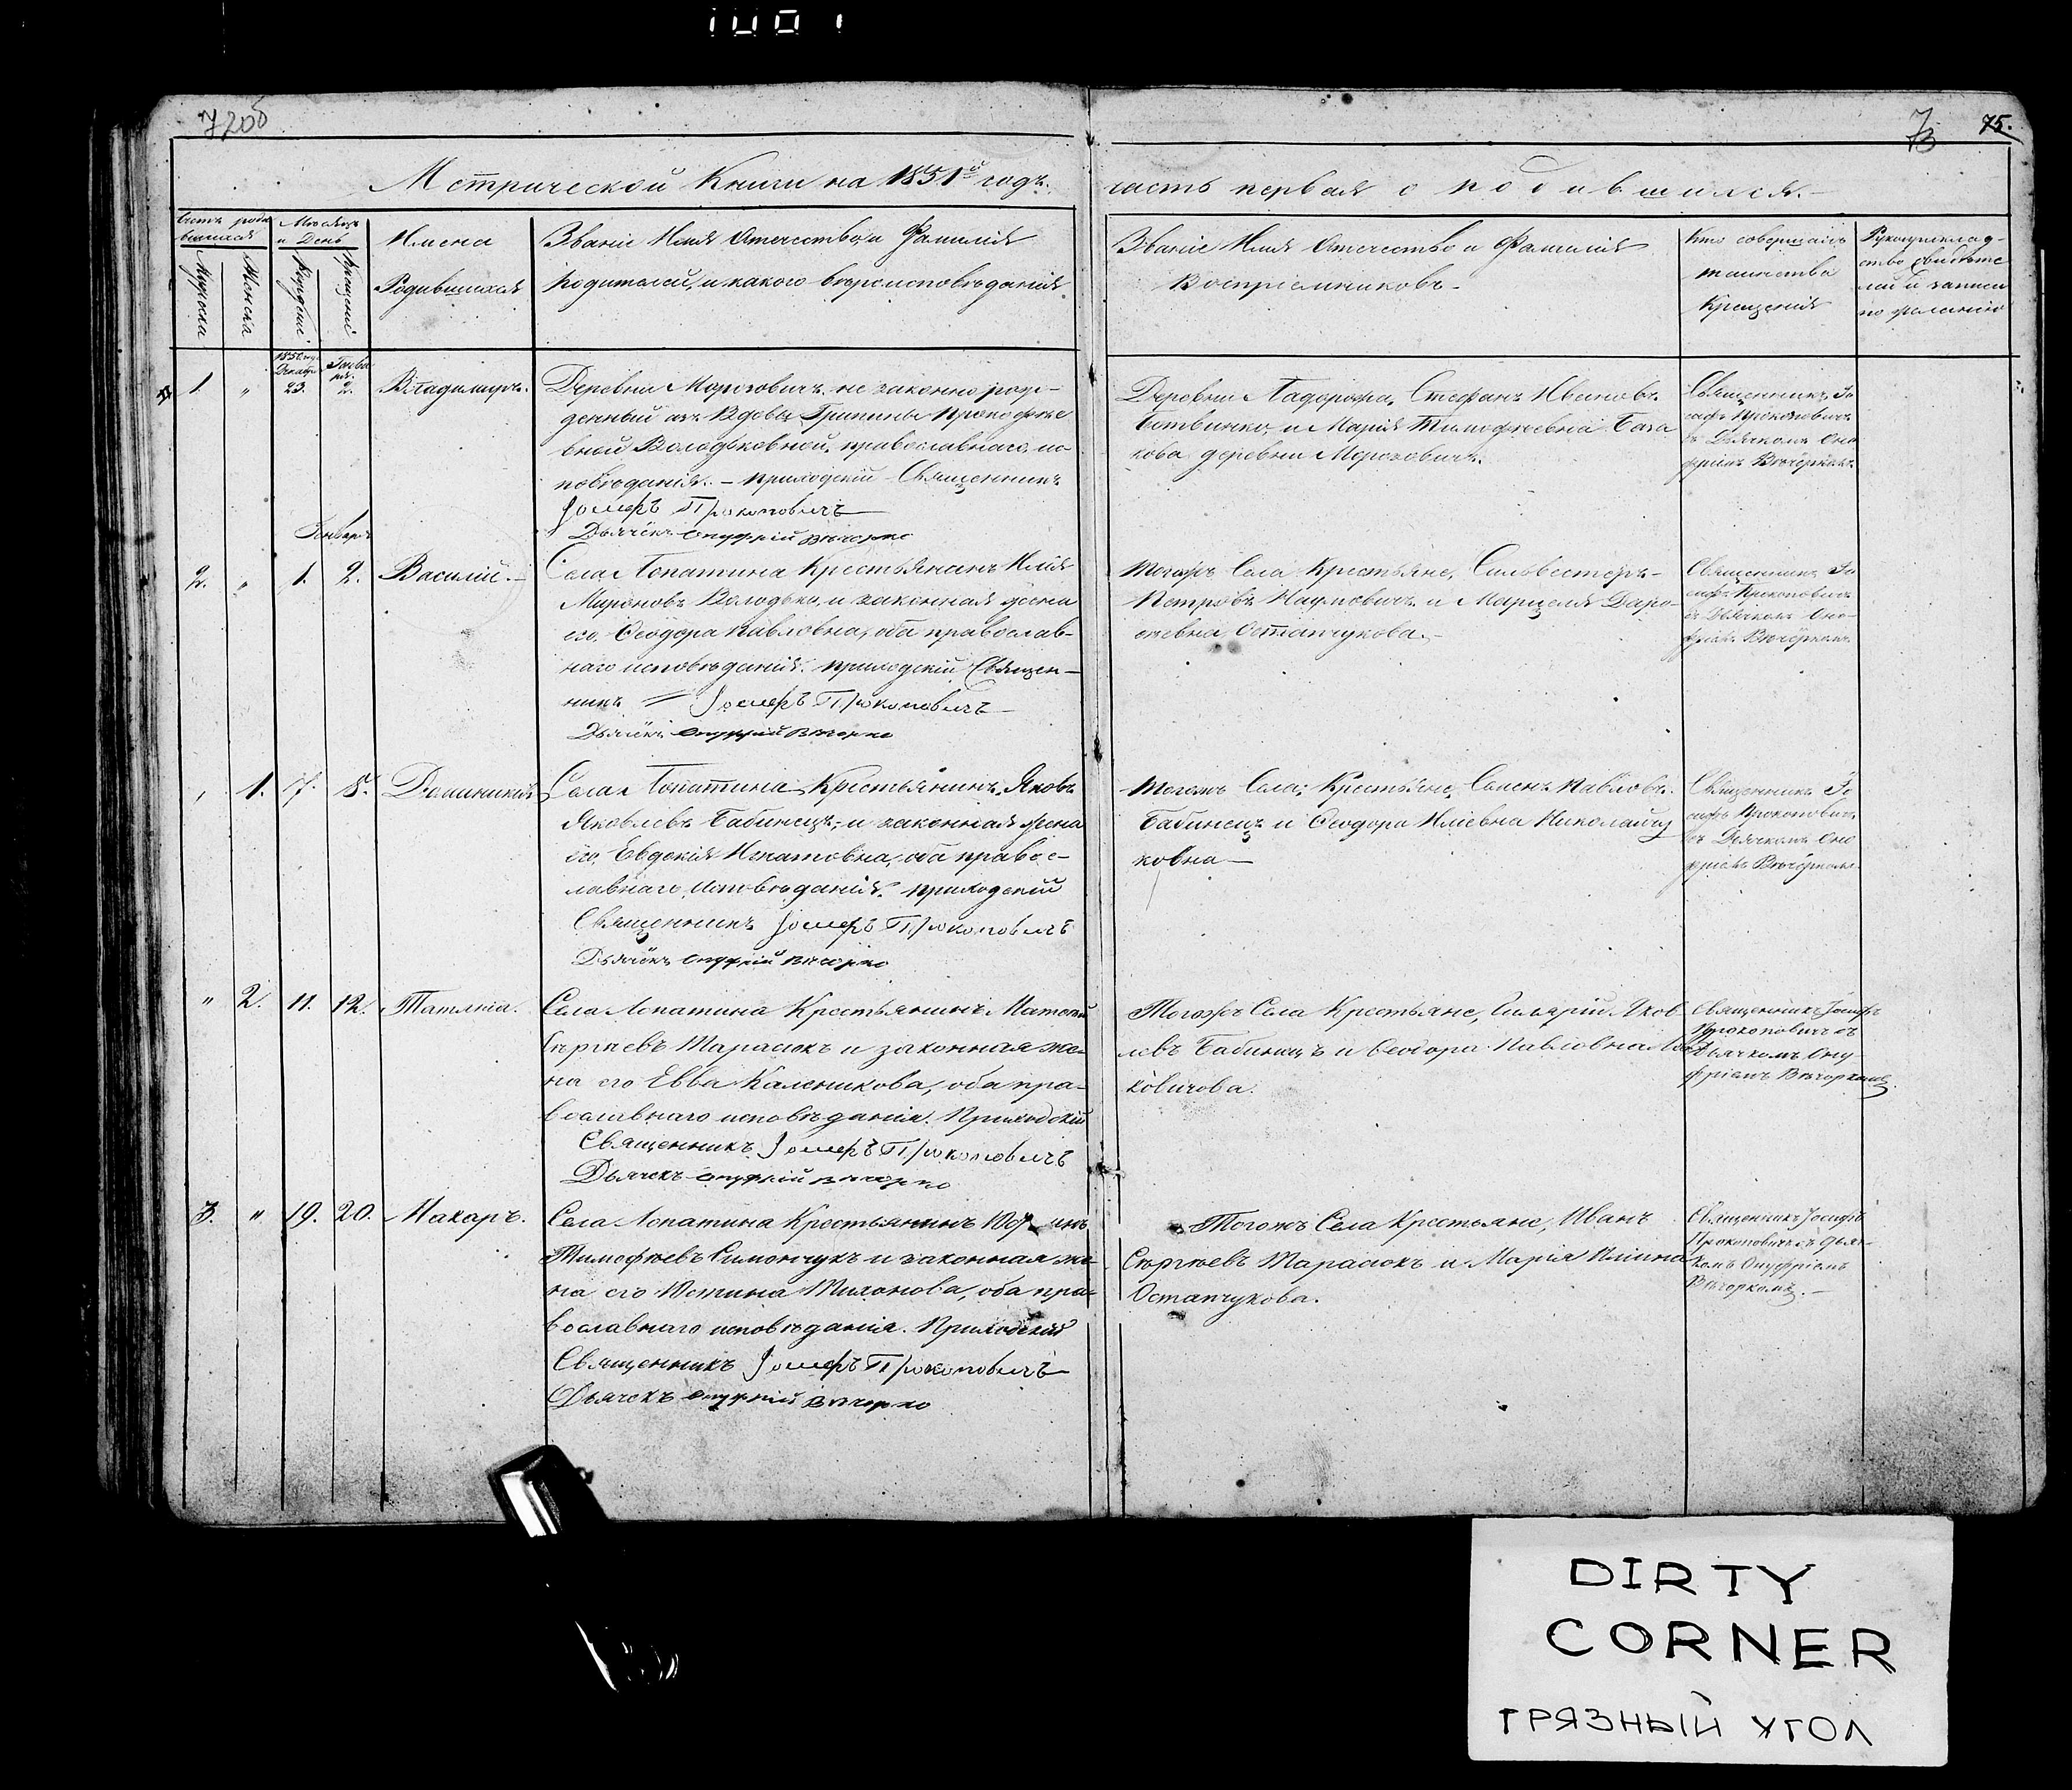 72об
73
75.
Метрической Книги на 1851й годъ.
часть первая о родившихся.
Мужеска
Женска
Мѣсяцъ
и День
Рожденіе
Крещеніе
Имена
Родившихся
Званіе Имя Отечество и Фамилія
родителей, и какого вѣроисповѣданія
Званіе Имя Отечество и Фамилія
Воспріемниковъ
Кто совершалъ
таинство
Крещенія
Рукоприклад-
ство свидѣте
лей о записи
по желанію
1. " Декабр 23. 2. Владимиръ.
Деревни Морозовичъ не законно рож-
денный изъ Вдовы Грипины Прокофіе
вной Володьковной, православнаго ис
повѣданія. – приходскій Священникъ
Іосифъ Прокоповичъ
Дьячекъ Онуфрій Вечорко
Деревни Стефанъ Ивановъ
Ботвинко, и Марія Тимофѣевна
кова деревни Морозовичъ.
Священникъ Іо
сифъ Прокоповичъ
съ Дьячкомъ Оно
фріемъ Вечоркомъ
Января
2. " 1. 2. Василій.
Села Лопатина Крестьянинъ Илія
Мироновъ Володько, и законная жена
его Ѳеодора Павловна, оба православ-
наго исповѣданія. приходскій Священ-
никъ Іосифъ Прокоповичъ
Дьячекъ Онуфрій Вечорко
Тогожъ Села Крестьяне, Сильвестеръ
Петровъ Наумовичъ и Марцеля
Остапчукова.
Священникъ Іо
сифъ Прокоповичъ
съ Дьячкомъ Оно-
фріемъ Вечоркомъ
" 1. 7. 8. Доминикія
Села Лопатина Крестьянинъ Яковъ
Яковлевъ Бабинецъ, и законная жена
его Евдокія Игнатовна, оба правос-
лавнаго исповѣданія. приходскій
Священникъ Іосифъ Прокоповичъ
Дьячекъ Онуфрій Вечорко
Тогожъ Села: Крестьяне, Семенъ Павловъ
Бабинецъ и Ѳеодора Иліевна Николайчу
ковна
Священникъ Іо
сифъ Прокоповичъ
съ Дьячкомъ Оно
фріемъ Вечоркомъ
" 2. 11. 12. Татяна.
Села Лопатина Крестьянинъ Матвѣй
Сергѣевъ Тарасюкъ и законная же-
на его Евва Каленикова, оба пра-
вославнаго исповѣданія. Приходскій
Священникъ Іосифъ Прокоповичъ
Дьячекъ Онуфрій Вечорко
Тогожъ Села Крестьяне, Иларій Яков
левъ Бабинецъ и Ѳеодора Павловна
ковичова.
Священникъ Іосифъ
Прокоповичъ съ
Дьячкомъ Ону-
фріемъ Вечоркомъ.
3. " 19. 20. Макаръ.
Села Лопатина Крестьянинъ
Тимофѣевъ Симончукъ и законная же-
на его Юстина Тихонова, оба пра-
вославнаго исповѣданія. Приходскій
Священникъ Іосифъ Прокоповичъ
Дьячекъ Онуфрій Вечорко
Тогожъ Села Крестьяне, Иванъ
Сергѣевъ Тарасюкъ и Марія Иліина
Остапчукова.
Священникъ Іосифъ
Прокоповичъ съ Дьяч-
комъ Онуфріемъ
Вечоркомъ.
DIRTY
CORNER
ГРЯЗНЫЙ УГОЛ